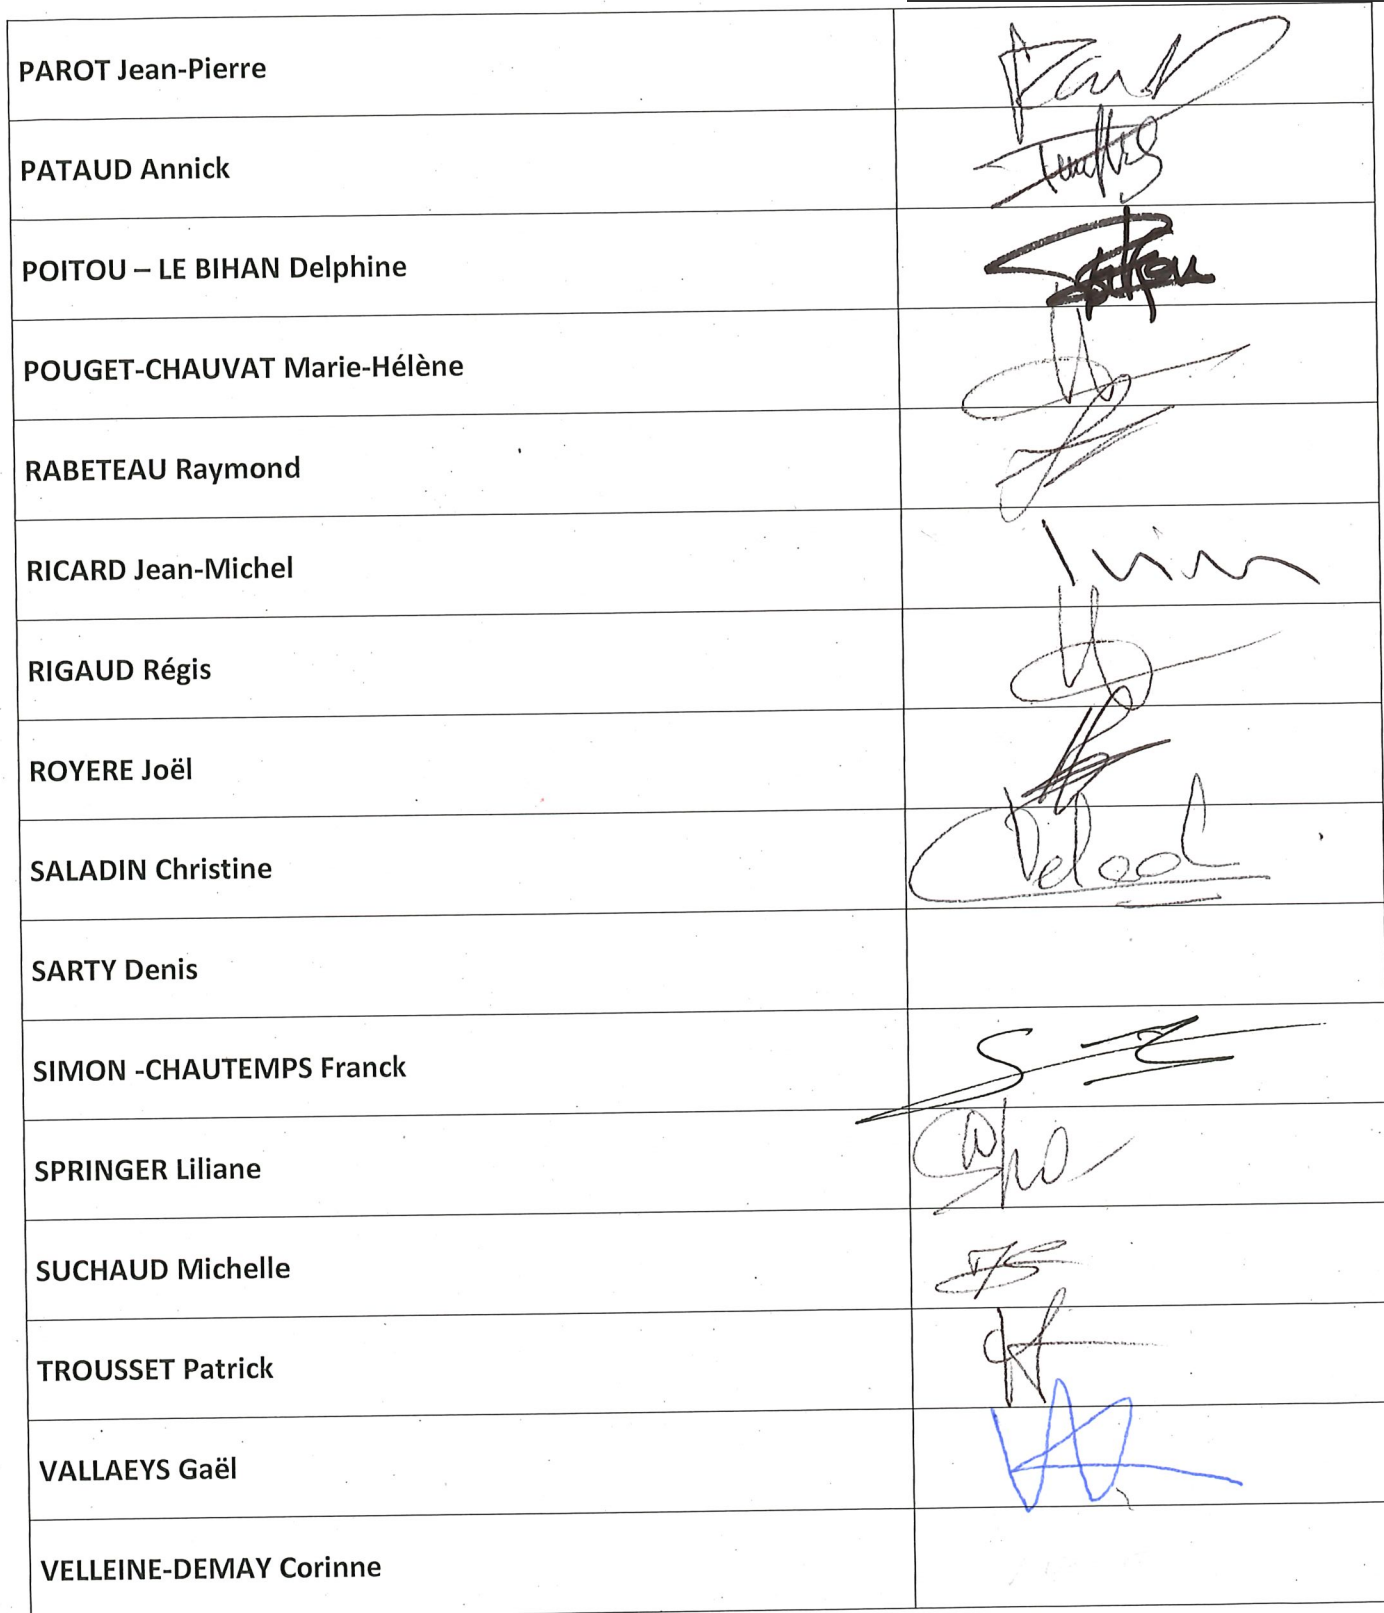 PAROT Jean-Pierre
PATAUD Annick
POITOU – LE BIHAN Delphine
POUGET-CHAUVAT Marie-Hélène
RABETEAU Raymond
RICARD Jean-Michel
RIGAUD Régis
ROYERE Joël
SALADIN Christine
SARTY Denis
SIMON -CHAUTEMPS Franck
SPRINGER Liliane
SUCHAUD Michelle
TROUSSET Patrick
VALLAEYS Gaël
VELLEINE-DEMAY Corinne